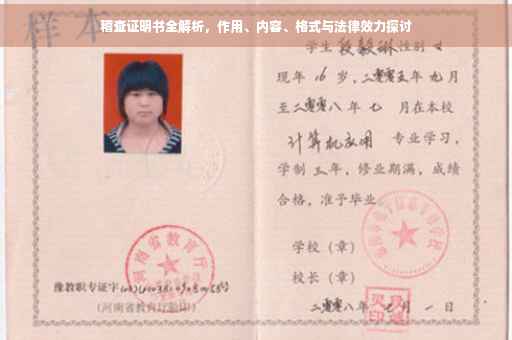 稽查证明书全解析，作用、内容、格式与法律效力探讨
样本
学生 段毅琳 性别 女
现年 16 岁，二零零五年 九 月
至二零零八年 七 月在本校
计算机应用 专业学习，
学制 三 年，修业期满，成绩
合格，准予毕业。
学校（章）
校长（章）
二零零八年 七 月 一 日
河南省教育厅
豫教职专证字
（河南省教育厅验印）